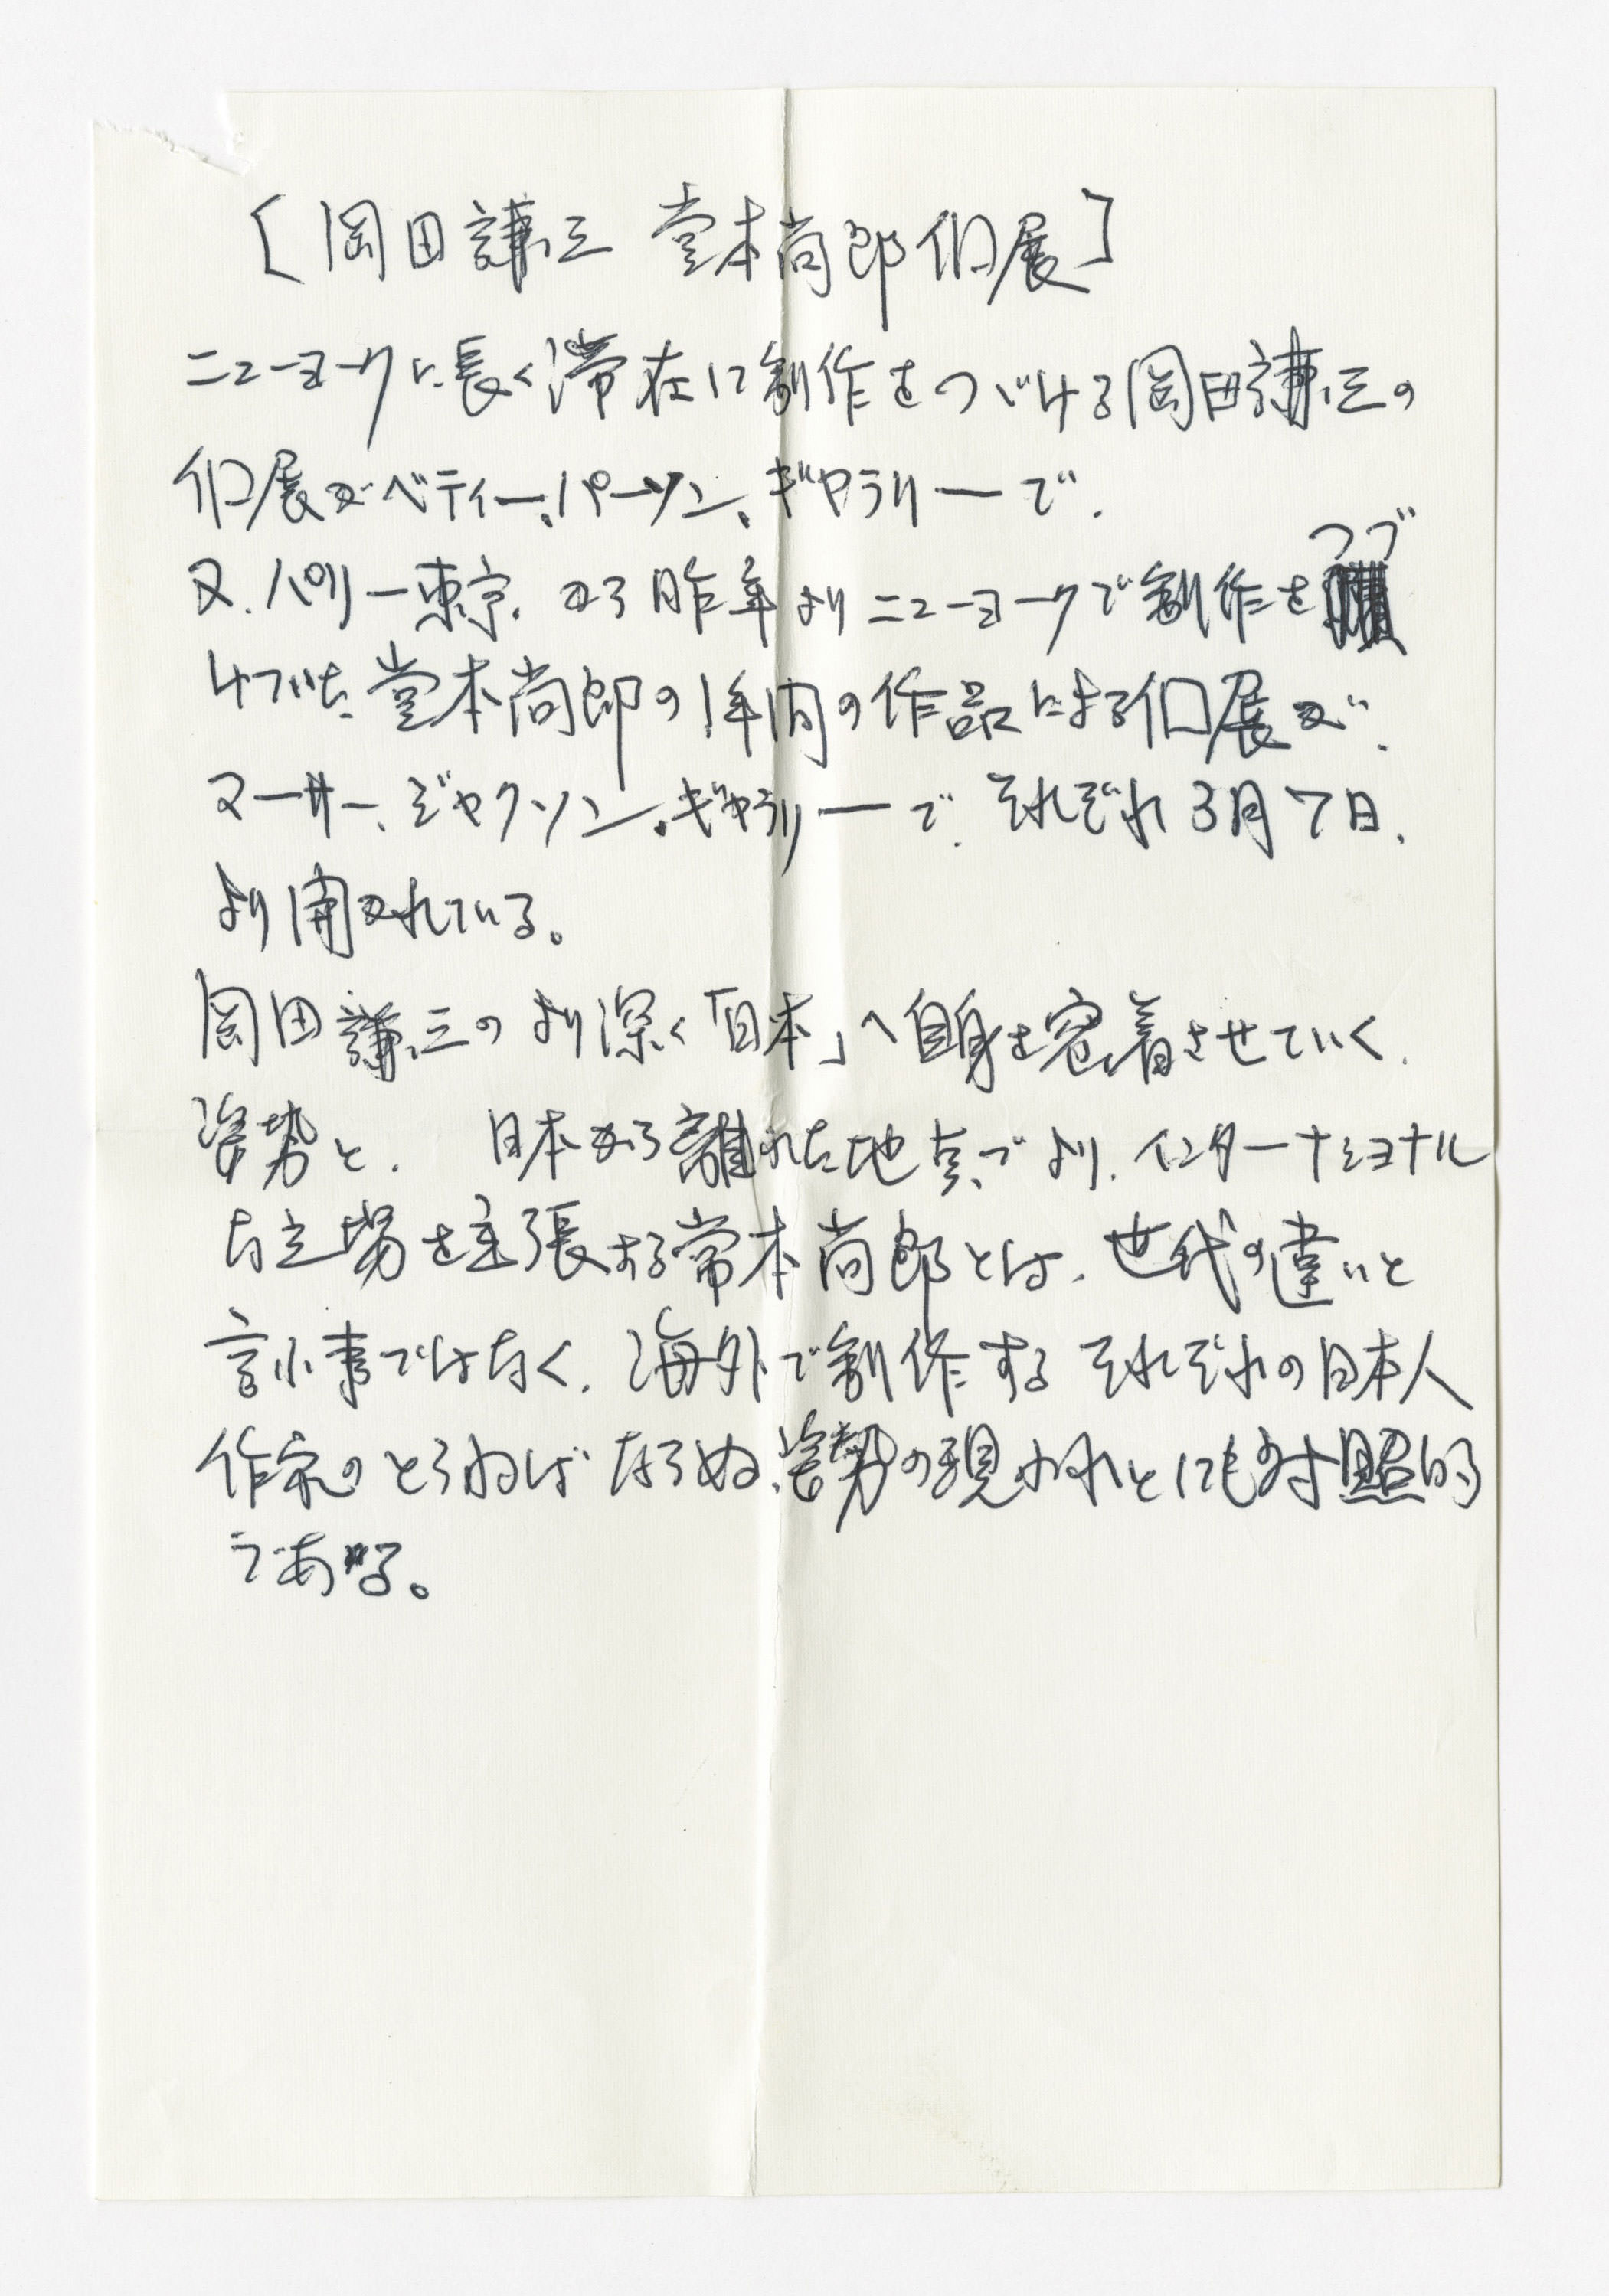 [岡田謙三 堂本尚郎個展]
ニューヨークに長く滞在し制作をつづける岡田謙三の
個展がベティー、パーソン、ギャラリーで、
又、パリー東京、から昨年よりニューヨークで制作をつづ
けていた堂本尚郎の1年間の作品による個展が、
マーサー、ジャクソン、ギャラリーで、それぞれ3月7日、
より開かれている。
岡田謙三のより深く「日本」へ自身を密着させていく、
姿勢と、 日本から離れた地点でより、インターナショナル
な立場を主張する常本尚郎とは、世代の違いと
言ふ事ではなく、海外で制作するそれぞれの日本人
作家のとらねばならぬ、姿勢の現われとしても対照的
である。